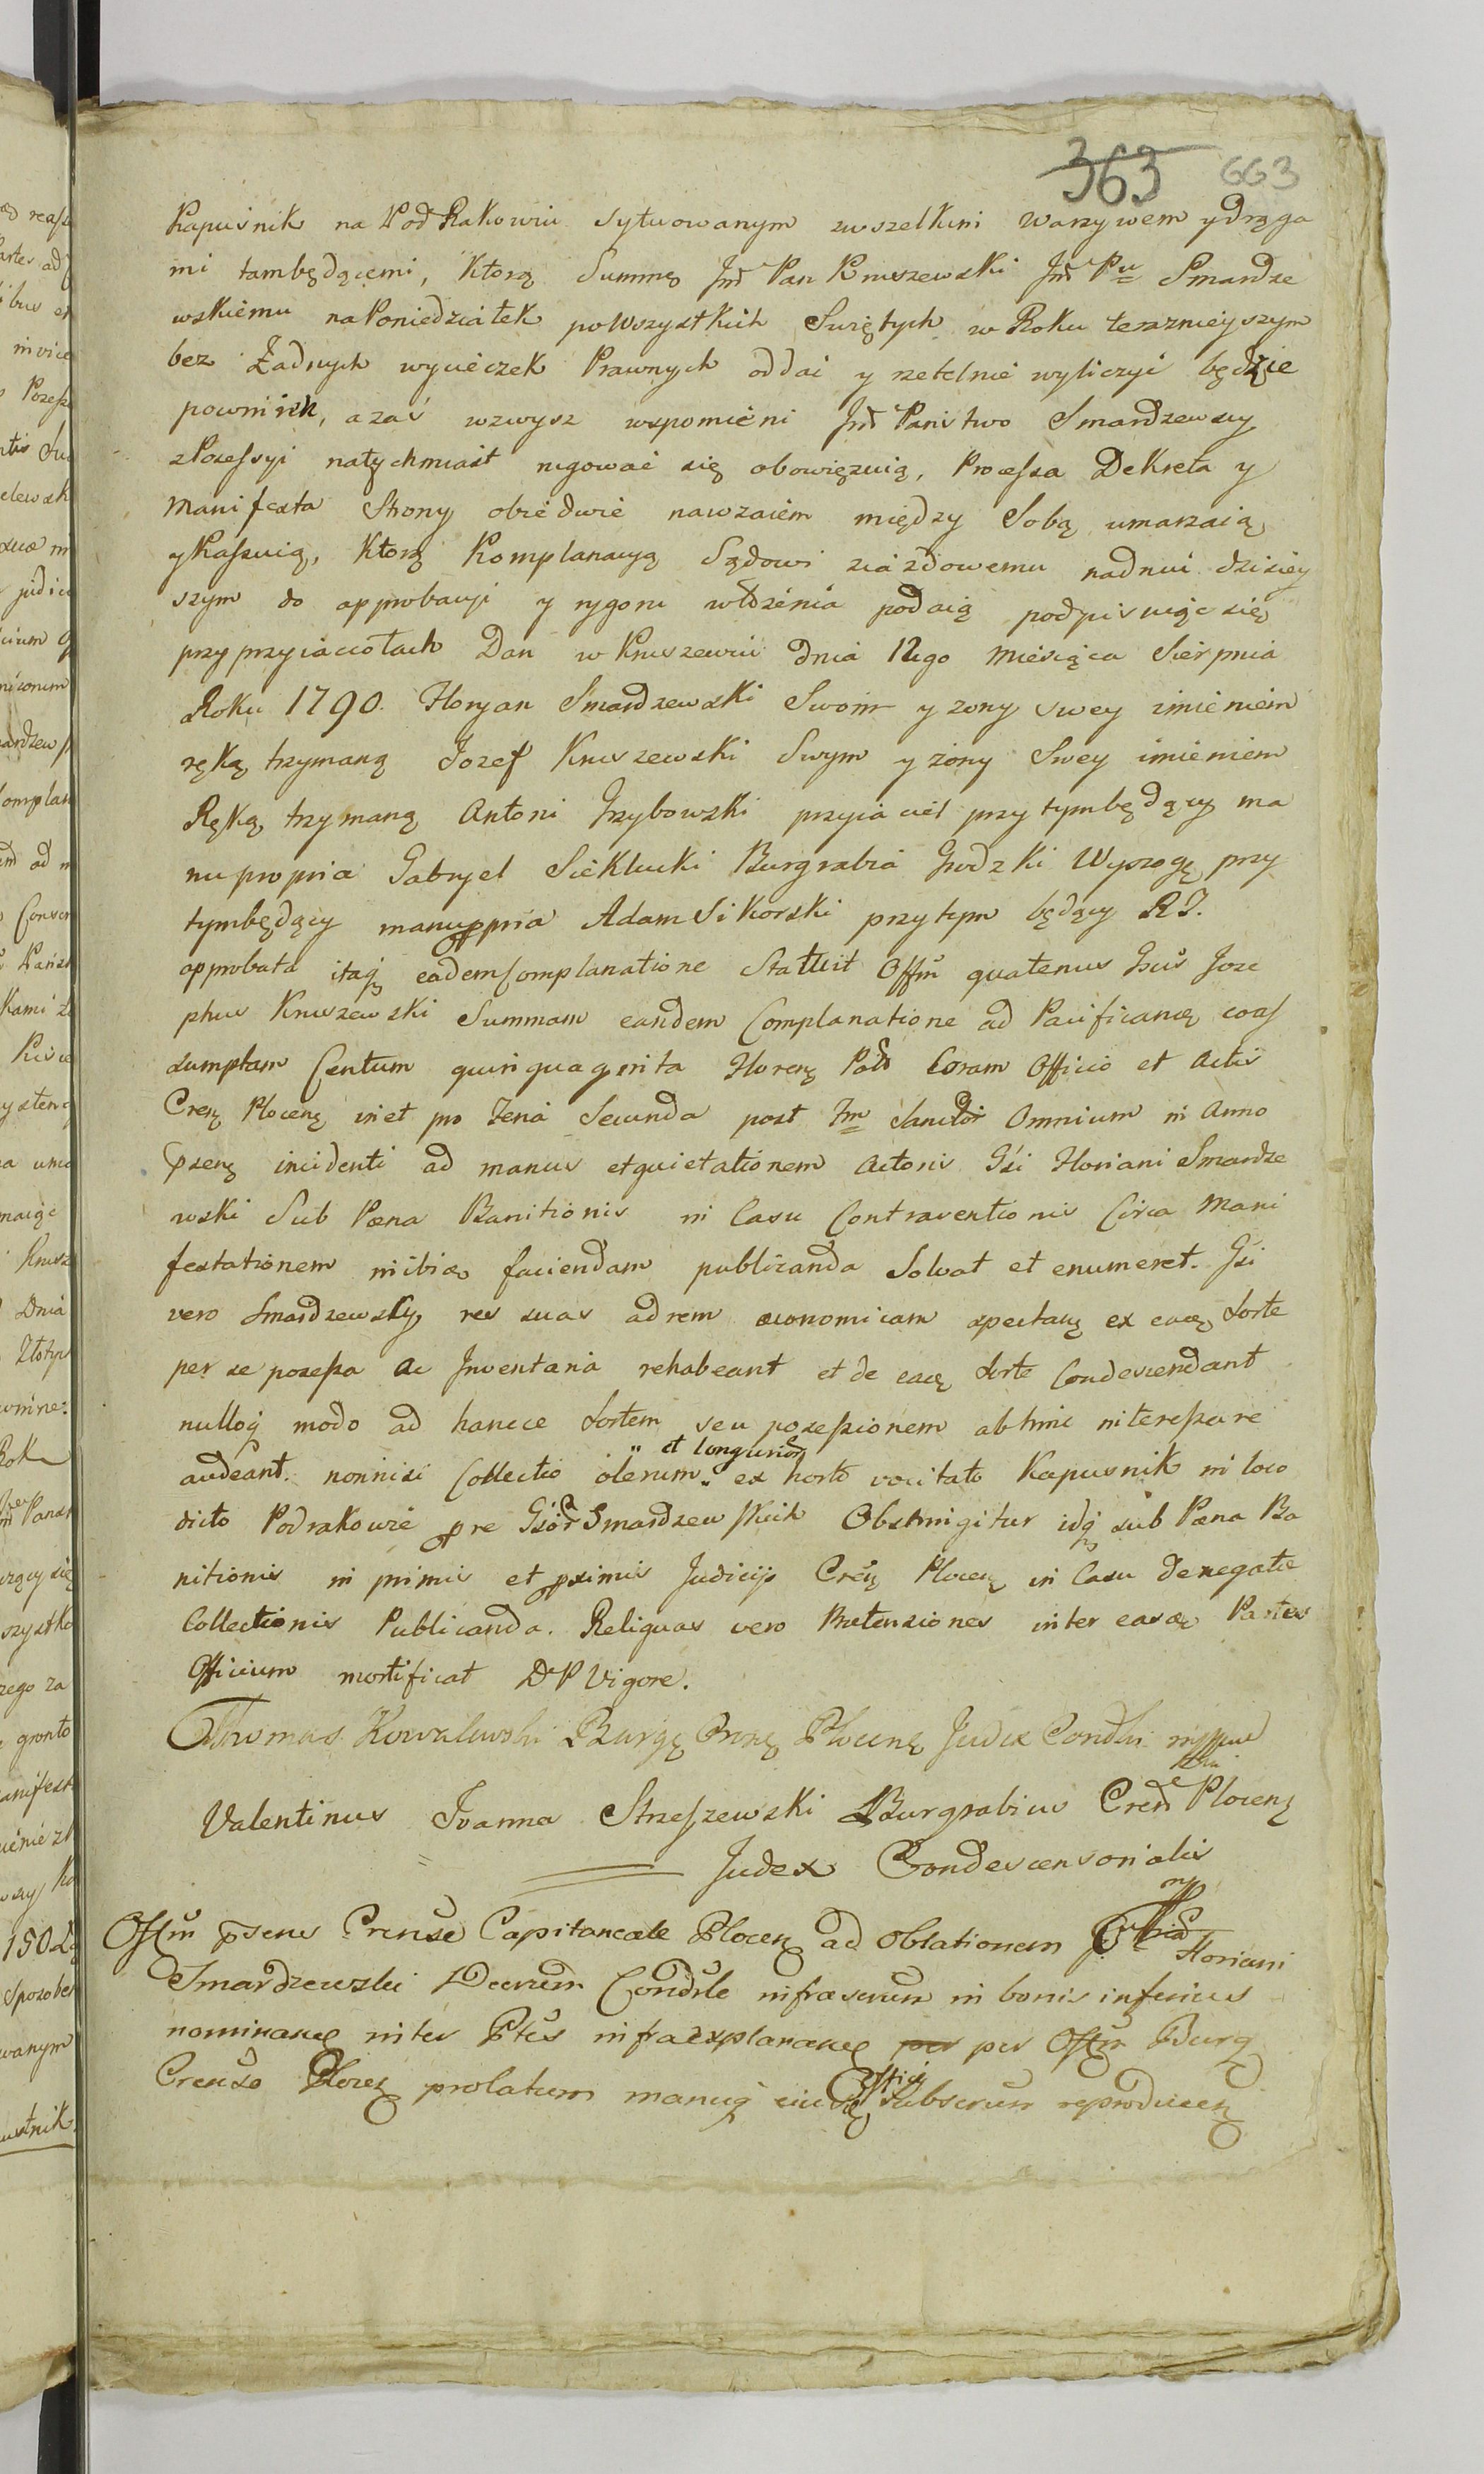 363 663
Kapusnik na Pod Rakowiu sytuowanym zwszelkim warzywem ydrąga
mi tambędącemi, Którą Summę Jmć Pan Kruszewski Jmć Pu Smardze
wskiemu naPoniedziałek poWszystkich Swiętych w Roku teraznieyszym
bez Żadnych wycieczek Prawnych oddać y rzetelnie wyliczyć będzie
powinien, azaś wzwysz wspomieni Jmć Państwo Smardzewscy
zPosessyi natychmiast rugować się obowięzuią, Processa Dekreta y
Manifesta Strony obiedwie nawzaiem między Sobą umarzaią
yKassuią, Którą Komplanacyą Sądowi ziazdowemu nadniu dzisiey
szym do approbacyi y rygoru włożenia podaią podpisuiąc się
przyprzyiaciołach Dan w Kruszewiu dnia 12go Miesiąca Sierpnia
Roku 1790. Floryan Smardzewski Swoim y zony swey imieniem
ręką trzymaną Jozef Kruszewski Swym y żony Swey imieniem
Ręką trzymaną Antoni Grzybowski przyiaciel przytymbędący ma
nupropria Gabryel Sieklucki Burgrabia Grodzki Wyszogę przy
tymbędący manuppria Adam Sikorski przytym będący R J.
approbata itaq eadem Complanatione Statuit Offm quatenus Gsus Jose
phus Kruszewski Summam eandem Complanatione ad Pacificanę coas
sumptam Centum quinquaginta Florenę Pol Coram Officio et Actis
Crenę Plocenę in et pro Feria Secunda post Fm Sanctor Omnium in Anno
psenę incidenti ad manus etquietationem Actoris Gsi Floriani Smardze
wski Sub Pœna Banitionis in Casu Contraventionis Circa Mani
festationem inibiæ faciendam publicanda Solvat et enumeret. Gsi
vero Smardzewscy res suas adrem œconomicam spectanę ex eaeę Sorte
per se possessa ac Inventaria rehabeant et de eaeę Sorte Condescendant
nulloq modo ad hancce Sortem seu possessionem abhinc interessare
audeant. nonnisi Collectio olerum " et longurior " ex horto vocitato Kapusnik in loco
dicto Podrakowie pre Gsor Smardzewskich Obstringitur idq sub Pœna Ba
nitionis in primis et pximis Judicijs Crenę Plocenę in Casu denegatæ
Collectionis Publicanda. Reliquas vero Prætensiones inter easdæ Partes
Officium mortificat D P Vigore.
Thomas Kowalewski Burgę Crenę Plocenę Judex Condlis mppria
Valentinus Joanna Strzeszewski Burgrabius Cren Plocenę
Judex Condescensorialis
mp
Offm psens Crense Capitaneale Plocenę ad oblationem Floriani
Smardzewski Decretum Condsle infrascrum in bonis inferius
nominanę inter Ptes infraexplananę per Offm Burg
Crense Plocenę prolatum manuq eiusdę Officij subscrum reproducenę